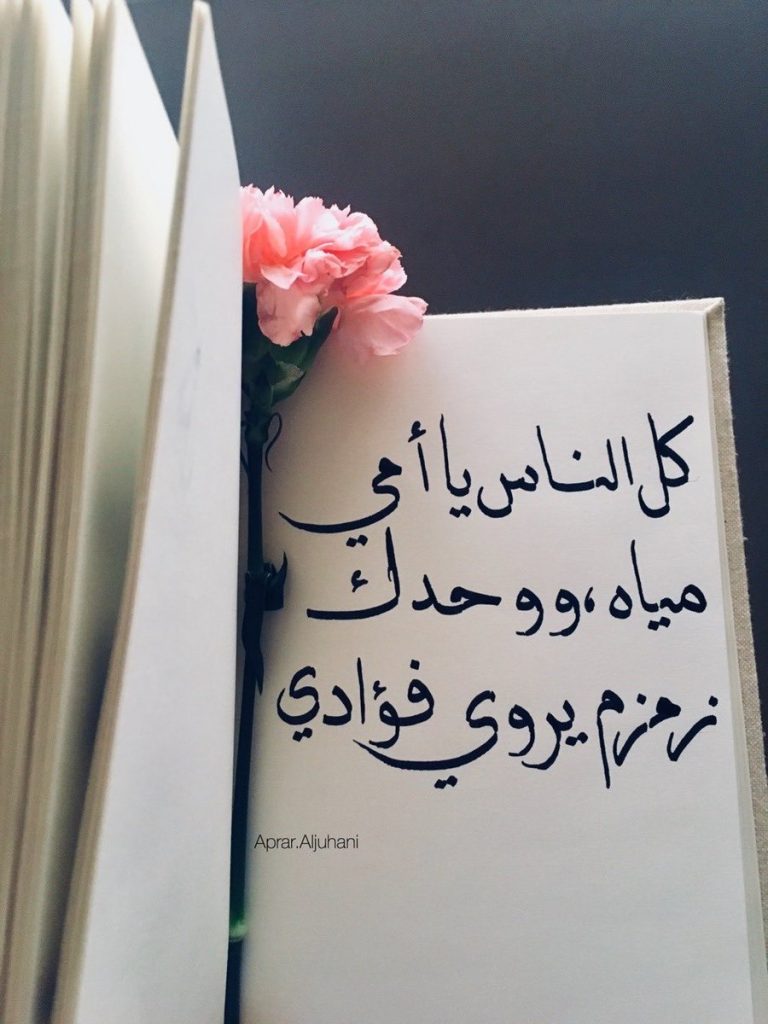 كل الناس يا أمي
مياه ،ووحدك
زمزم يروي فؤادي
Aprar.Aljuhani